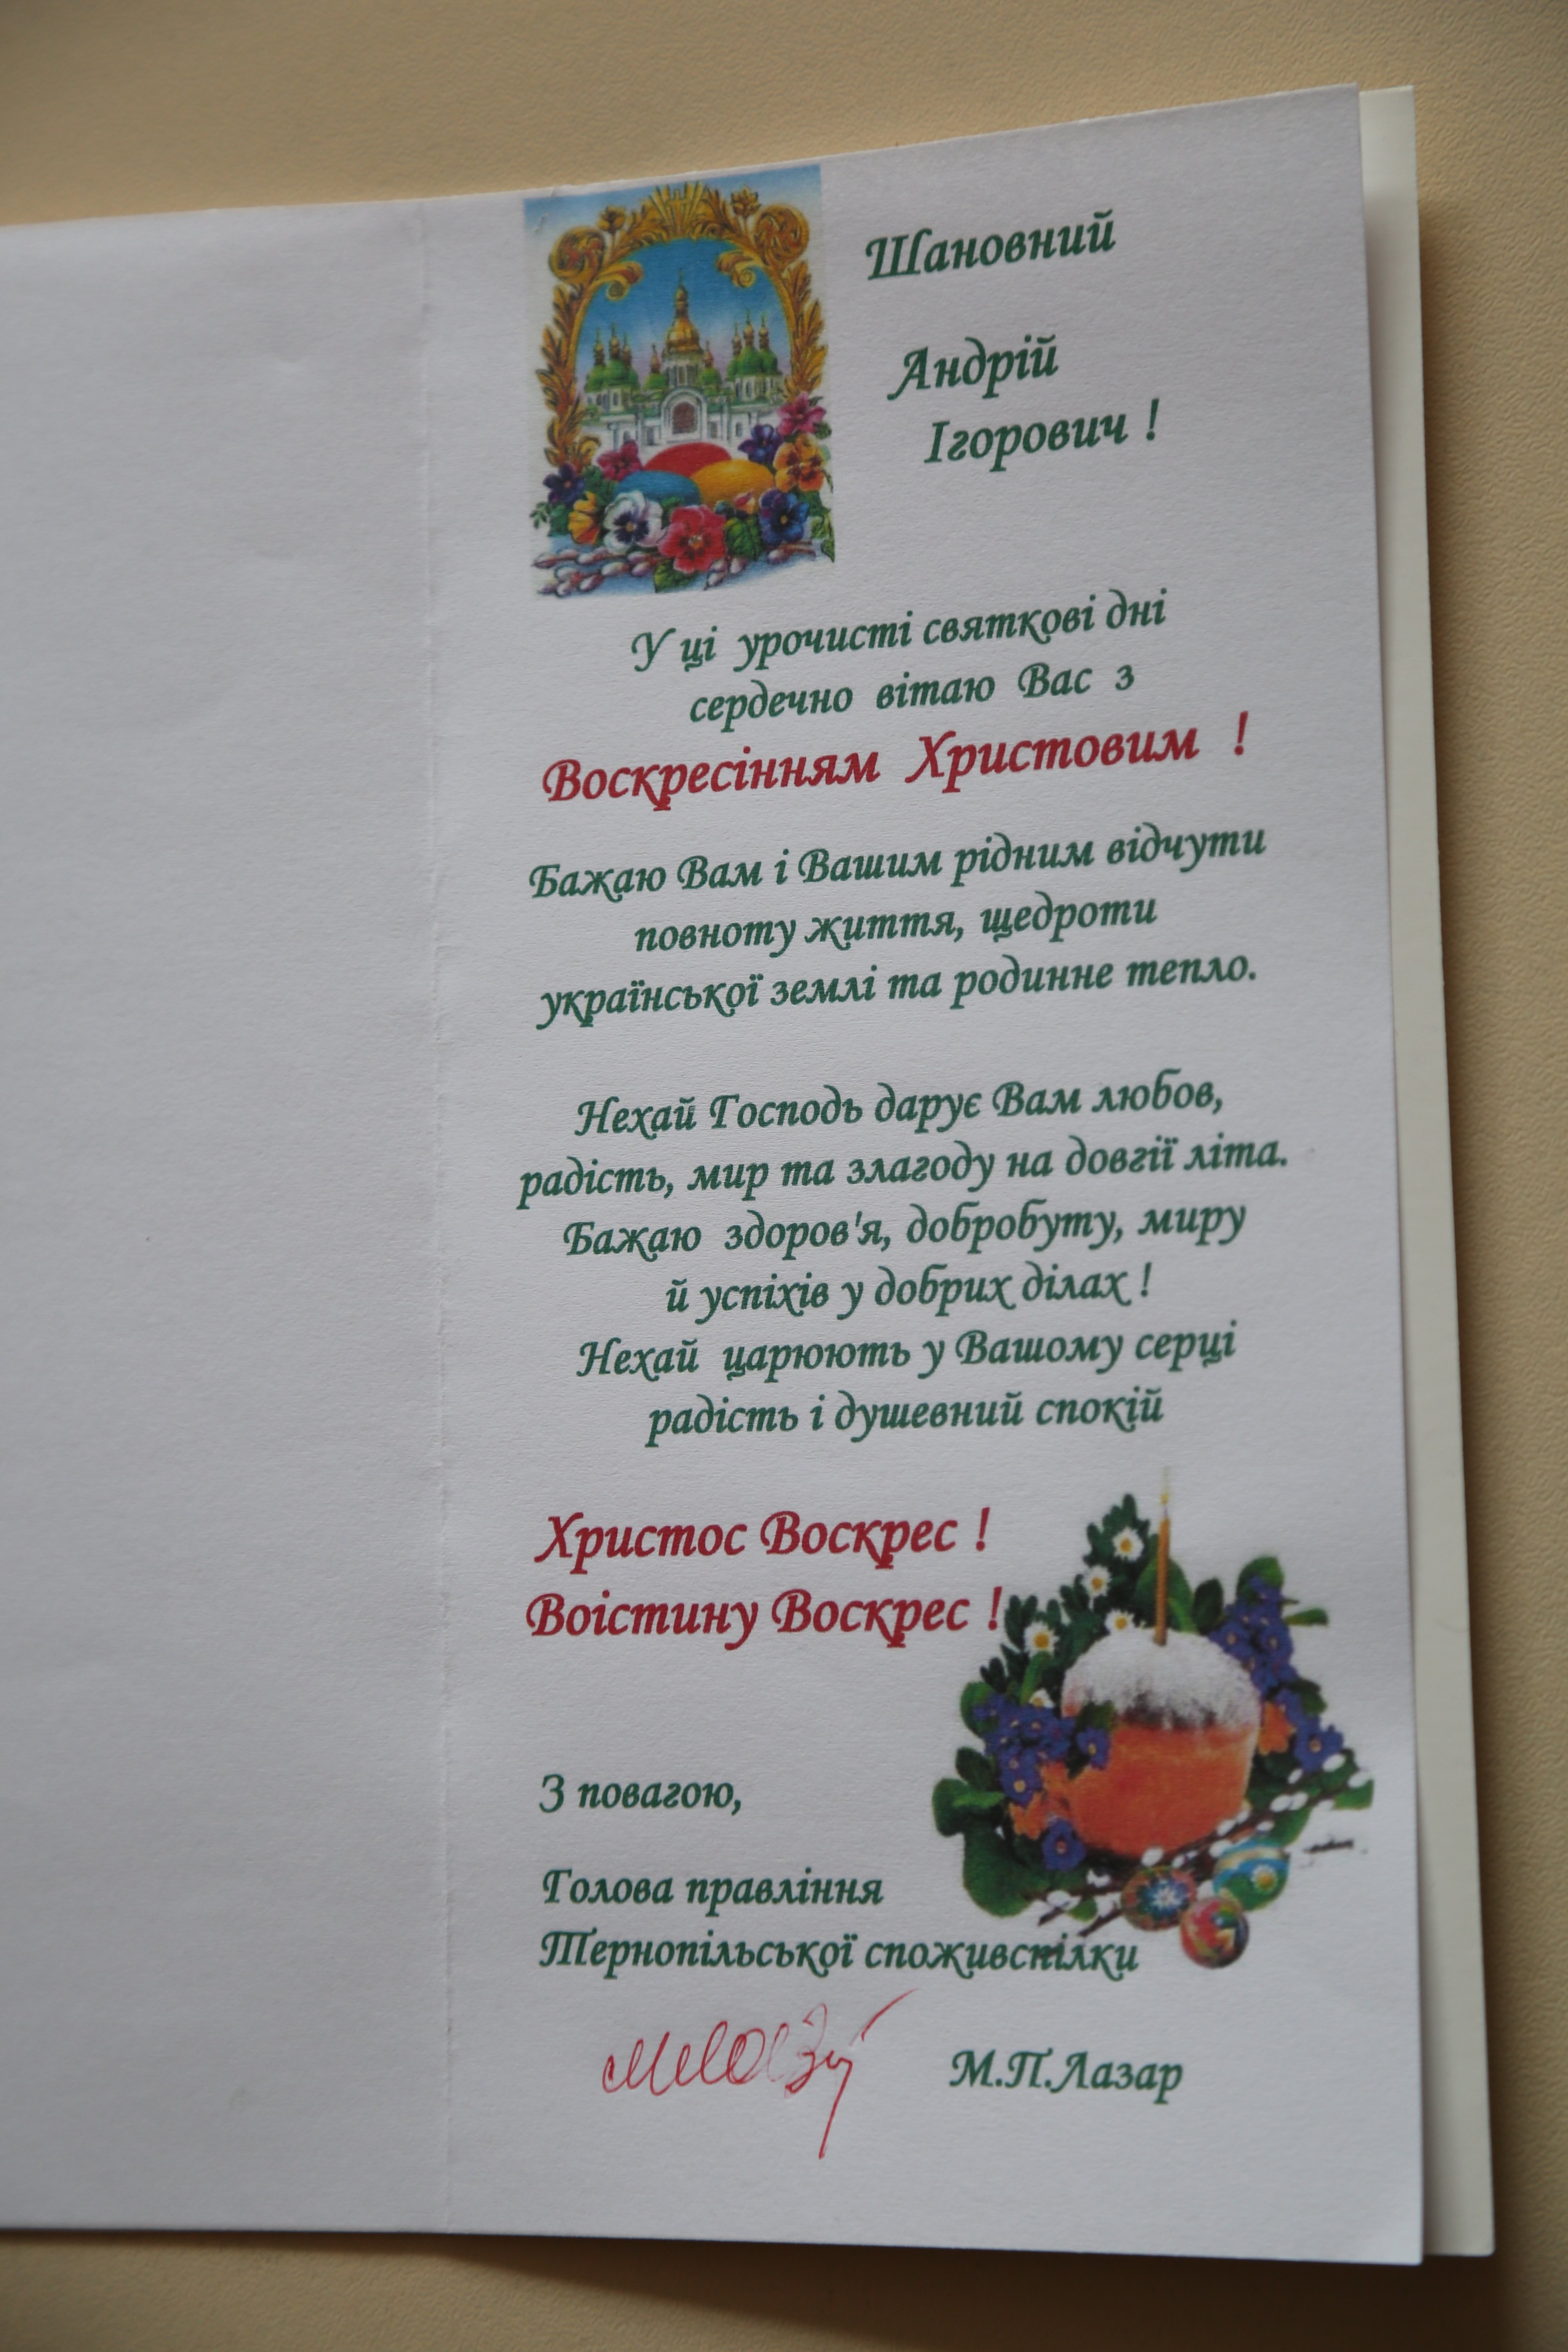 Шановний
Андрій
Ігорович !
У ці урочисті святкові дні
сердечно вітаю Вас з
Воскресінням Христовим !
Бажаю Вам і Вашим рідним відчути
повноту життя, щедроти
української землі та родинне тепло.
Нехай Господь дарує Вам любов,
радість, мир та злагоду на довгії літа.
Бажаю здоров'я, добробуту, миру
й успіхів у добрих ділах !
Нехай царюють у Вашому серці
радість і душевний спокій
Христос Воскрес !
Воістину Воскрес !
З повагою,
Голова правління
Тернопільської споживспілки
М.П.Лазар